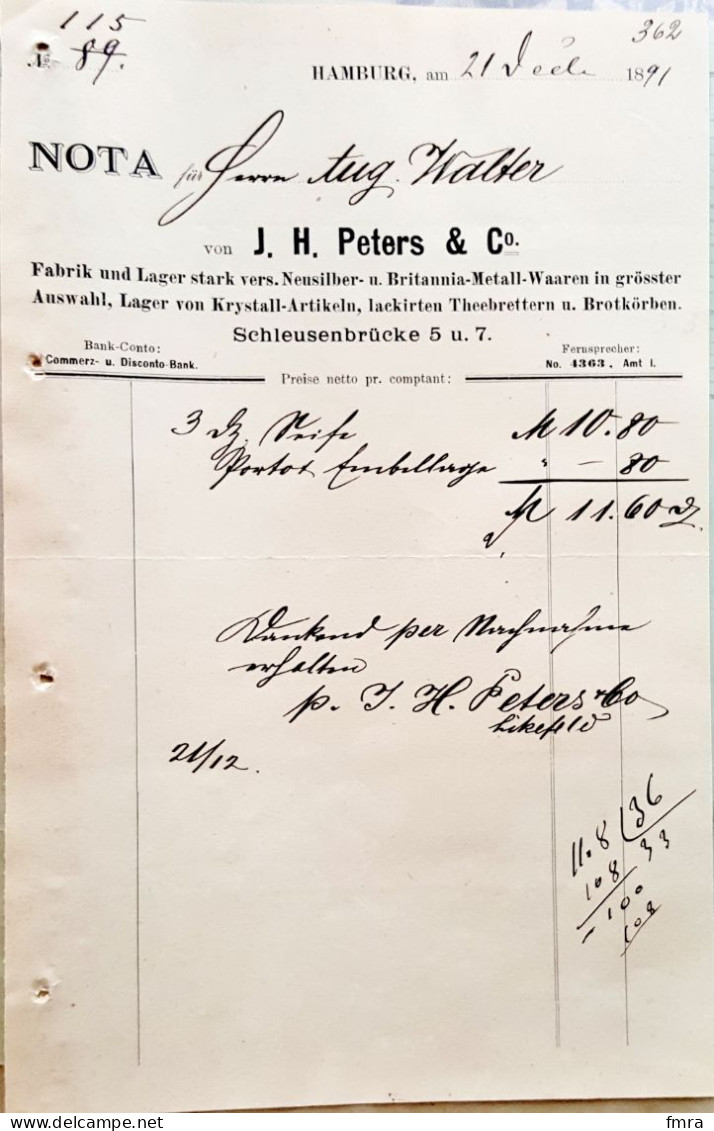 115
362
№ 89.
HAMBURG, am 21 Decbr 1891
NOTA für Herrn Aug. Walter
von J. H. Peters & Co.
Fabrik und Lager stark vers. Neusilber- u. Britannia-Metall-Waaren in grösster
Auswahl, Lager von Krystall-Artikeln, lackirten Theebrettern u. Brotkörben.
Schleusenbrücke 5 u. 7.
Bank-Conto:
Commerz- u. Disconto-Bank.
Fernsprecher:
No. 4363, Amt I.
Preise netto pr. comptant:
3 Dz. Seife M 10.80
Porto & Emballage " – 80
M 11.60
Dankend per Nachnahme
erhalten
p. J. H. Peters & Co
21/12.
11.8 / 36
108 33
100
108
delcampe.net
fmra